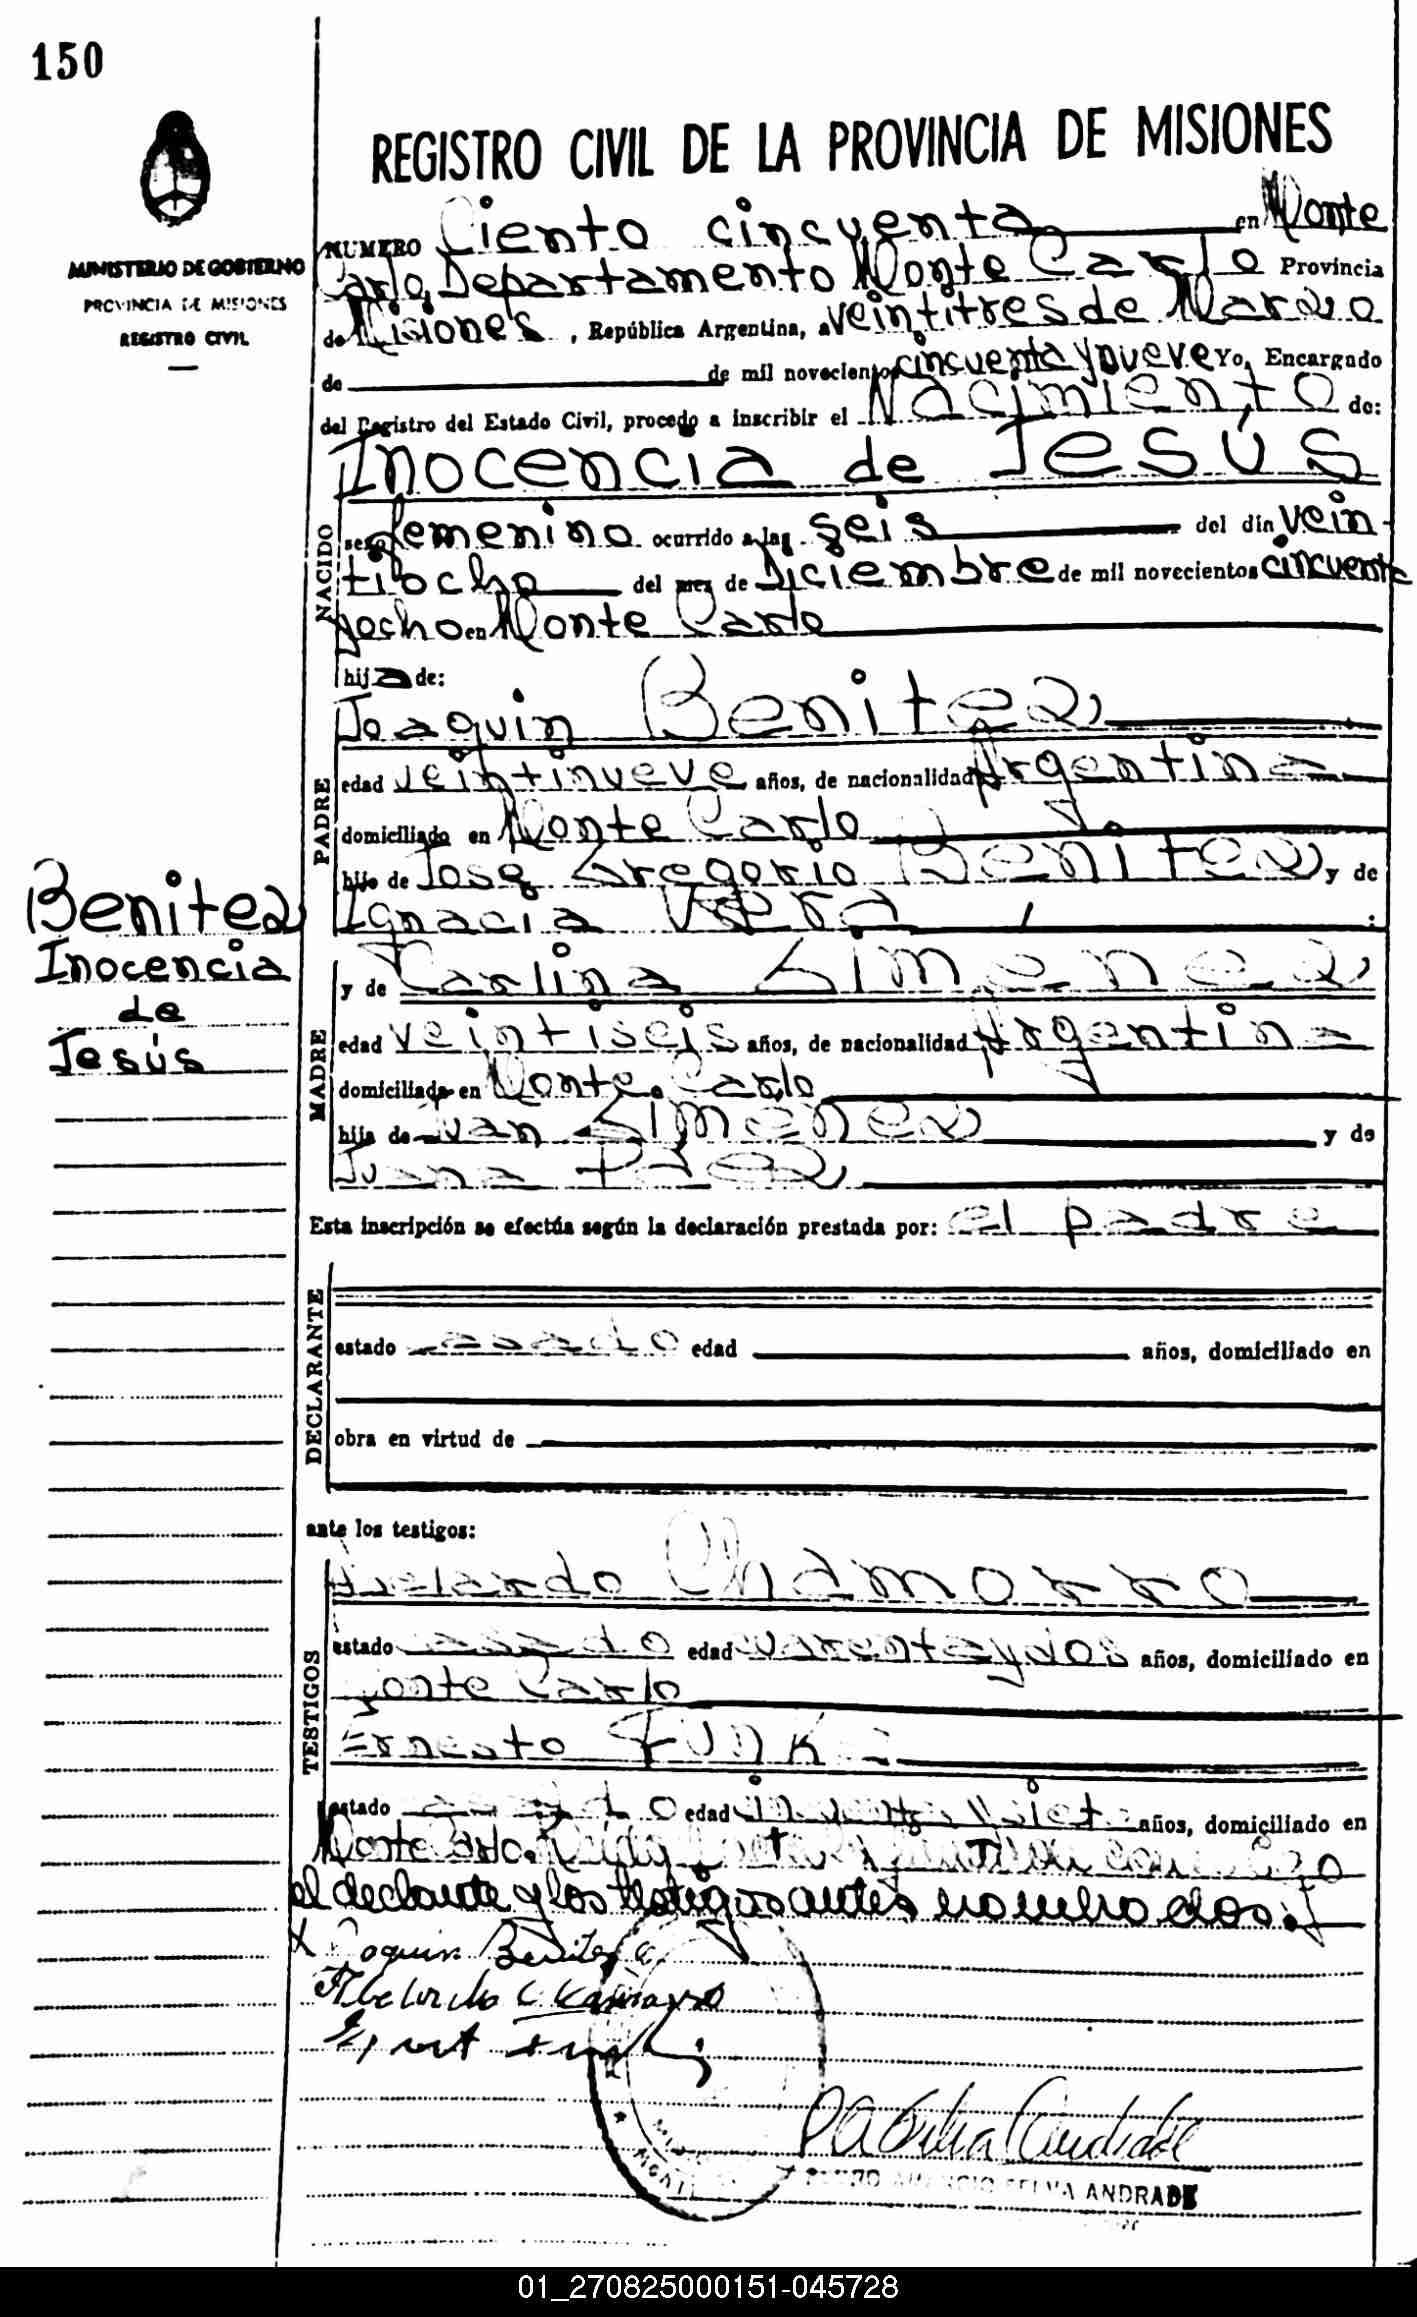 150
REGISTRO CIVIL DE LA PROVINCIA DE MISIONES
MINISTERIO DE GOBIERNO
PROVINCIA DE MISIONES
REGISTRO CIVIL
NUMERO Ciento cincuenta en Monte
Carlo, Departamento Monte Carlo Provincia
de Misiones, República Argentina, a veintitres de Marzo
de de mil novecientos cincuenta y nueve Yo, Encargado
del Registro del Estado Civil, procedo a inscribir el Nacimiento de:
Inocencia de Jesús
NACIDO
sexo femenino ocurrido a las seis del día vein-
tiocho del mes de Diciembre de mil novecientos cincuenta
y ocho en Monte Carlo
hija de:
PADRE
Joaquin Benitez
edad veintinueve años, de nacionalidad Argentina
domiciliado en Monte Carlo
hijo de José Gregorio Benitez y de
Ignacia Vera
Benitez
Inocencia
de
Jesús
MADRE
y de Carlina Gimenez
edad veintiseis años, de nacionalidad Argentina
domiciliada en Monte Carlo
hija de Juan Gimenez y de
Juana Paez
Esta inscripción se efectúa según la declaración prestada por: el padre
DECLARANTE
estado casado edad años, domiciliado en
obra en virtud de
ante los testigos:
TESTIGOS
Chamorro
estado casado edad cuarenta y dos años, domiciliado en
Monte Carlo
Ernesto Funk
estado casado edad años, domiciliado en
Monte Carlo.
el declarante y los testigos antes nombrados.
Joaquin Benitez
ANDRADE
01_270825000151-045728